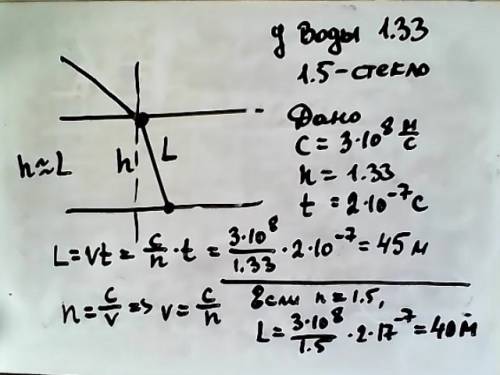 у воды 1.33
1.5-стекло
Дано
c = 3·10⁸ м/с
n = 1.33
t = 2·10⁻⁷ с
h≈L
h
L
L = vt = c/n · t = 3·10⁸/1.33 · 2·10⁻⁷ = 45 м
n = c/v => v = c/n
Если n = 1.5,
L = 3·10⁸/1.5 · 2·17⁻⁷ = 40 м